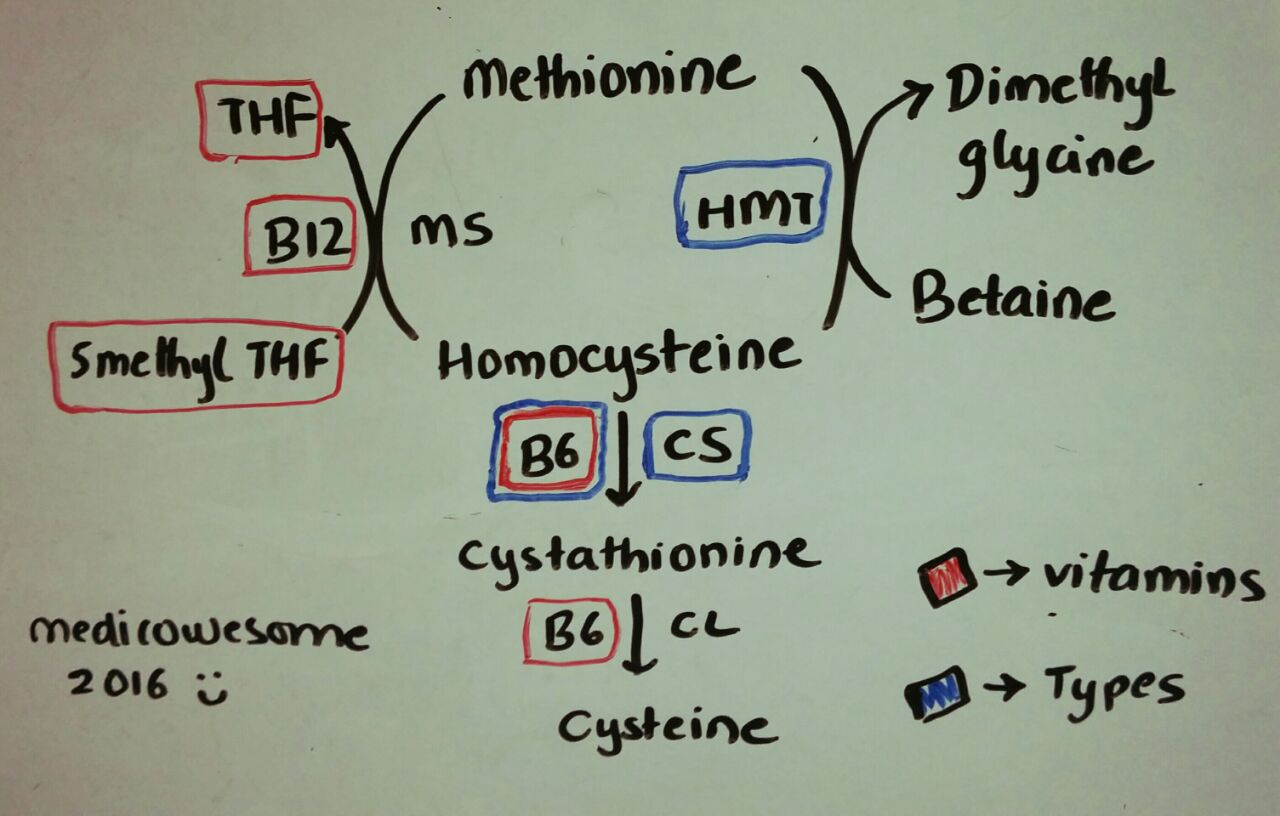 Methionine
THF
Dimethyl
glycine
B12
MS
HMT
Betaine
5methyl THF
Homocysteine
B6
CS
Cystathionine
B6
CL
Cysteine
→ vitamins
→ Types
medicowesome
2016 :)